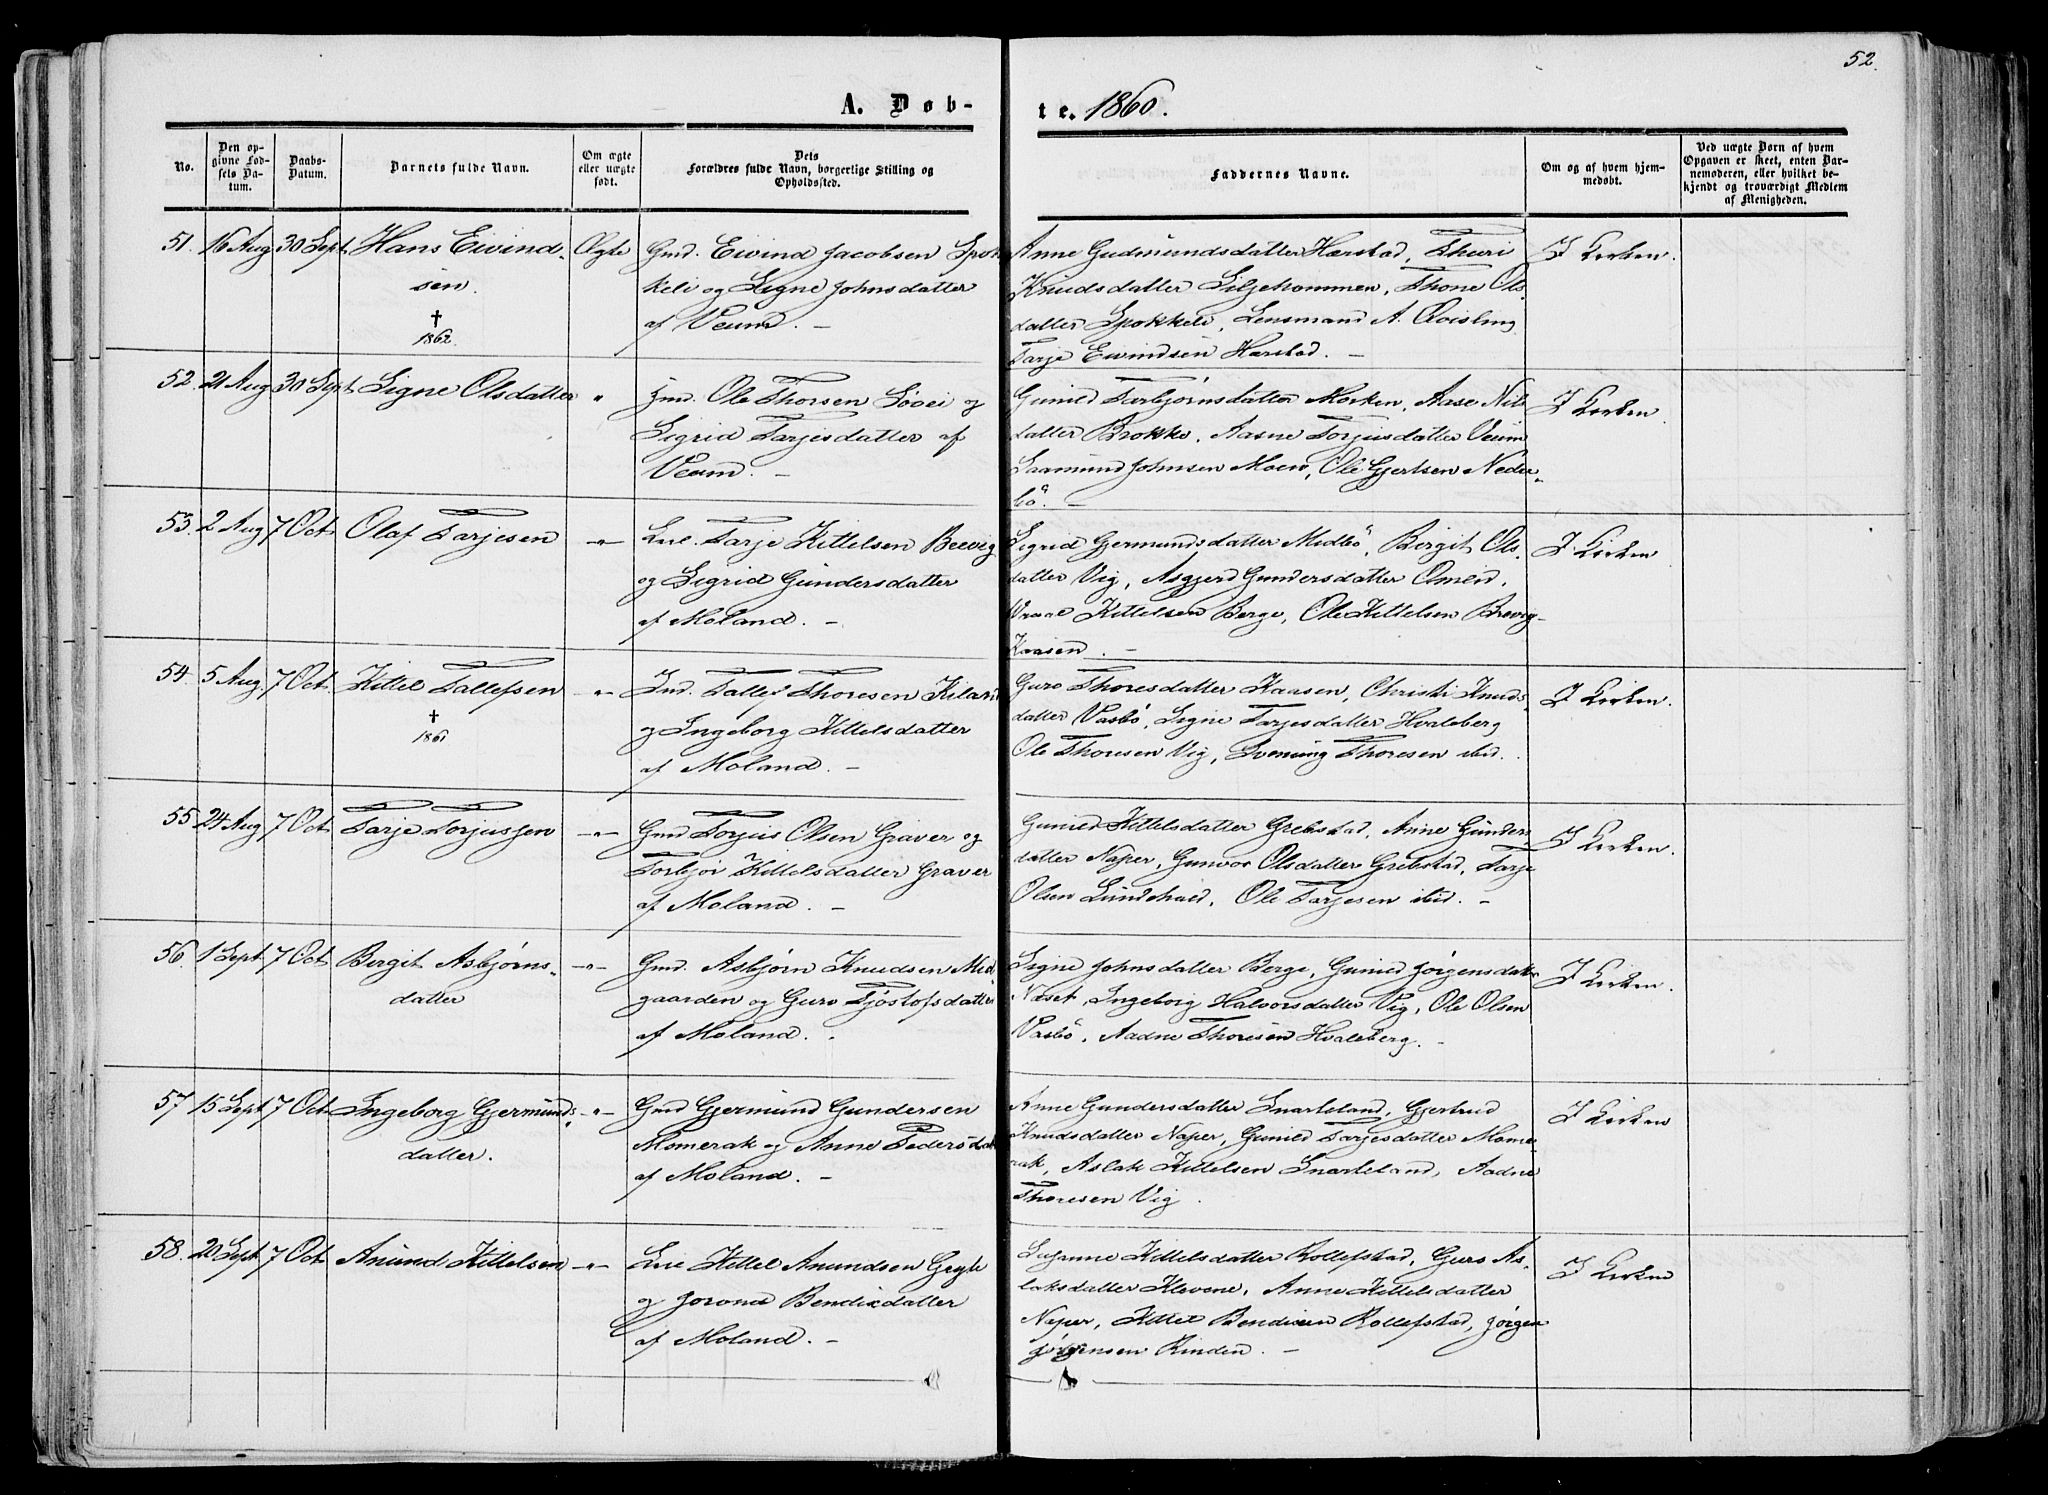 52.
A. Døb-
te. 1860.
No.
Den op-
givne Fød-
sels Da-
tum.
Daabs-
Datum.
Barnets fulde Navn.
Om ægte
eller uægte
født.
Dets
Forældres fulde Navn, borgerlige Stilling og
Opholdssted.
Faddernes Navne.
Om og af hvem hjem-
medøbt.
Ved uægte Børn af hvem
Opgaven er skeet, enten Bar-
nemoderen, eller hvilket be-
kjendt og troværdigt Medlem
af Menigheden.
51. 16 Aug 30 Sept. Hans Eivind-
sen.
†
1862.
Ægte
Gmd. Eivind Jacobsen Spok
keli og Signe Johnsdatter
af Veum. —
Anne Gudmundsdatter Harstad, Thuri
Knudsdatter Siljehommen, Thone Ols-
datter Spokkeli, Lensmand A. Qvisling
Tarje Eivindsen Harstad. —
I Kirken.
52. 21 Aug 30 Sept. Signe Olsdatter "
Gmd. Ole Thorsen Løvei og
Sigrid Tarjesdatter af
Veum. —
Gunild Torbjørnsdatter Morken, Aase Nils
datter Brokke, Aasne Torjusdatter Veum
Saamund Johnsen Moen, Ole Gjertsen Neder-
bö. —
I Kirken.
53. 2 Aug 7 Oct Olaf Tarjesen —"—
Tarje Kittelsen Brevig
og Sigrid Gundersdatter
af Moland. —
Sigrid Gjermundsdatter Midbö, Birgit Ols-
datter Vig, Asgjerd Gundersdatter Omlid,
Vraal Kittelsen Berge, Ole Kittelsen Brevig-
Kaasen. —
I Kirken
54. 5 Aug. 7 Oct. Kittel Tallefsen
†
1861
—"—
Tallef Thoresen Kiland
og Ingeborg Kittelsdatter
af Moland. —
Guro Thoresdatter Kaasen, Christi Knuds-
datter Vasbö, Signe Tarjesdatter Hvaleberg
Ole Thoresen Vig, Svenung Thoresen ibid.
I Kirken.
55 24 Aug 7 Oct. Tarje Torjussen —"—
Gmd Torjus Olsen Graver og
Torbjör Kittelsdatter Graver
af Moland. —
Gunild Kittelsdatter Grebstad, Anne Gunders
datter Naper, Gunvor Olsdatter Grebstad, Tarje
Olsen Lundehaed, Ole Tarjesen ibid. —
I Kirken.
56. 1 Sept 7 Oct Birgit Asbjørns-
datter
—"—
Gmd. Asbjørn Knudsen Mid
gaarden og Guro Tjøstolfsdatter
af Moland.
Signe Johnsdatter Berge, Gunild Jørgensdatter
Næset, Ingeborg Halvorsdatter Vig, Ole Olsen
Vasbö, Aadne Thoresen Hvaleberg. —
I Kirken.
57 15 Sept 7 Oct Ingeborg Gjermunds-
datter.
—"—
Gmd Gjermund Gundersen
Momerak og Anne Pedersdat
af Moland. —
Anne Gundersdatter Snarteland, Gjertrud
Knudsdatter Naper, Gunild Tarjesdatter Mome-
rak, Aslak Kittelsen Snarteland, Aadne
Thoresen Vig.
I Kirken
58. 20 Sept 7 Oct. Anund Kittelsen —"—
Kittel Anundsen Gryte
og Jorond Bendixdatter
af Moland. —
Susanne Kittelsdatter Rollefstad, Guro As-
laksdatter Klevene, Anne Kittelsdatter
Naper, Kittel Bendixen Rollefstad, Jörgen
Jörgensen Rinden. —
I Kirken